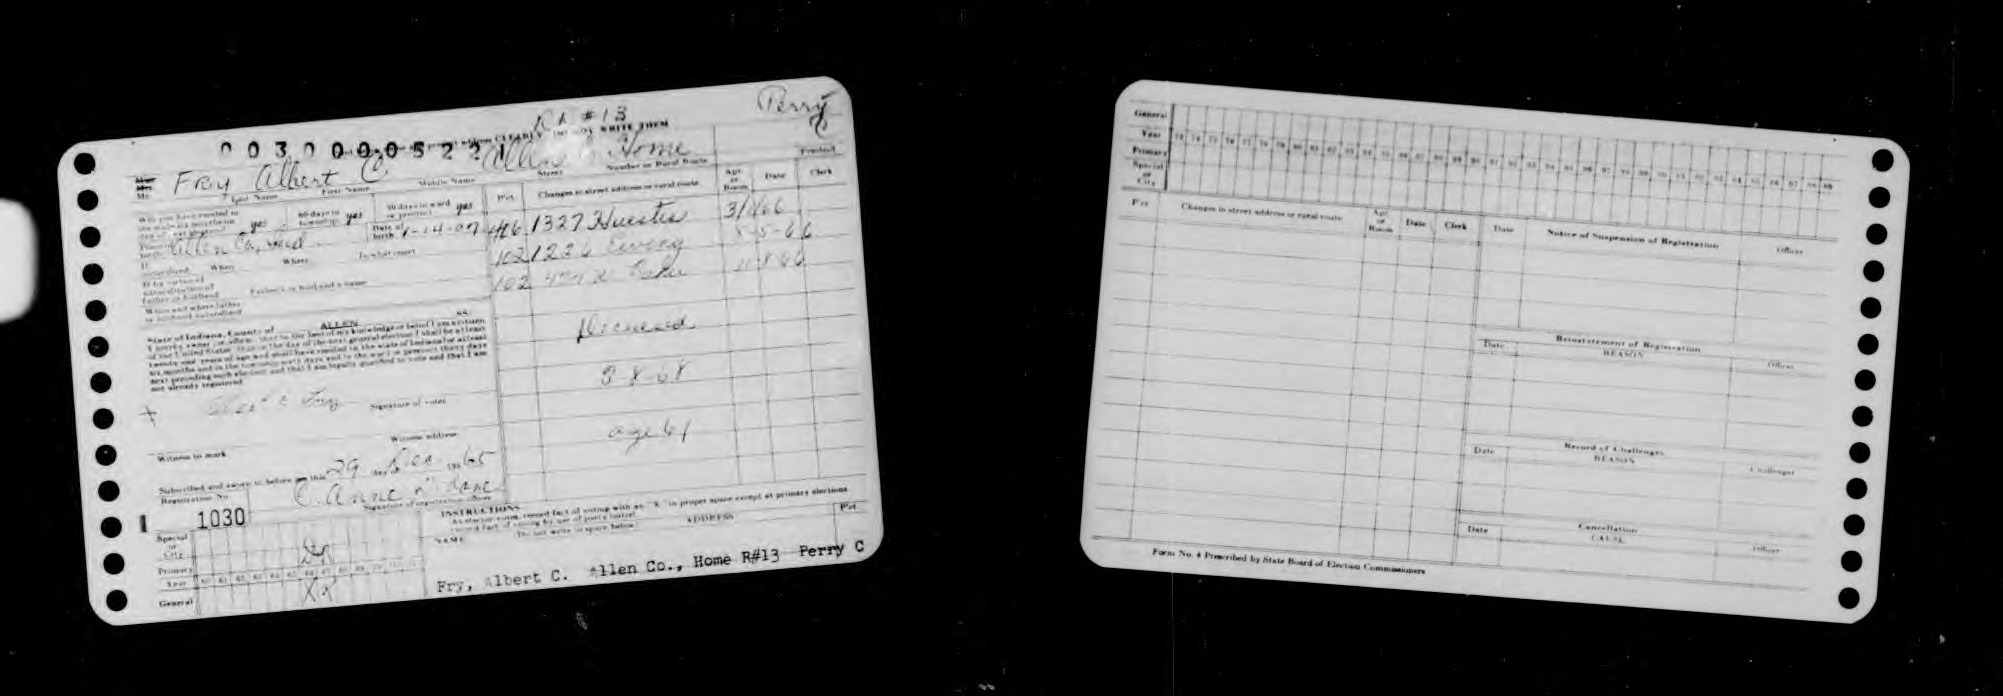 Rt #13
Perry
C
0030000522
present address CLEARLY DO NOT WRITE THEM
Mr. FRY Albert C. Allen Co Home
Last Name First Name Middle Name Street Number or Rural Route Precinct
Will you have resided in the state six months on day of next election? yes 60 days in township yes 30 days in ward or precinct yes
Place of birth Allen Co, Ind Date of birth 1-14-07
If naturalized When Where In what court
If by virtue of naturalization of father or husband Father's or husband's name
When and where father or husband naturalized
Pct Changes in street address or rural route Apt. or Room Date Clerk
416 1327 Huestis 3/1/66
102 1226 8-5-66
102 11-8-66
Deceased
3-8-68
age 61
State of Indiana, County of ALLEN SS:
I hereby swear or affirm that to the best of my knowledge or belief I am a citizen
of the United States that on the day of the next general election I shall be at least
twenty-one years of age and shall have resided in the state of Indiana for at least
six months and in the township sixty days and in the ward or precinct thirty days
next preceding such election and that I am legally qualified to vote and that I am
not already registered
X Albert C Fry
Signature of voter
Witness to mark Witness address
Subscribed and sworn to before me this 29 day of 1965
Registration No. C. Anne
Signature of registration officer
1030
Special or City
Primary
Year 60 61 62 63 64 65 66 67 68 69 70 71
General XX
INSTRUCTIONS
As elector votes, record fact of voting with an "X" in proper space except at primary elections
record fact of voting by use of party initial
Do not write in space below
NAME ADDRESS Pct
Fry, Albert C. Allen Co., Home R#13 Perry C
General
Year
Primary
Special or City
Pct Changes in street address or rural route Apt. or Room Date Clerk
Date Notice of Suspension of Registration Officer
Reinstatement of Registration
Date REASON Officer
Record of Challenges
Date REASON Challenger
Cancellation
Date CAUSE Officer
Form No. 4 Prescribed by State Board of Election Commissioners